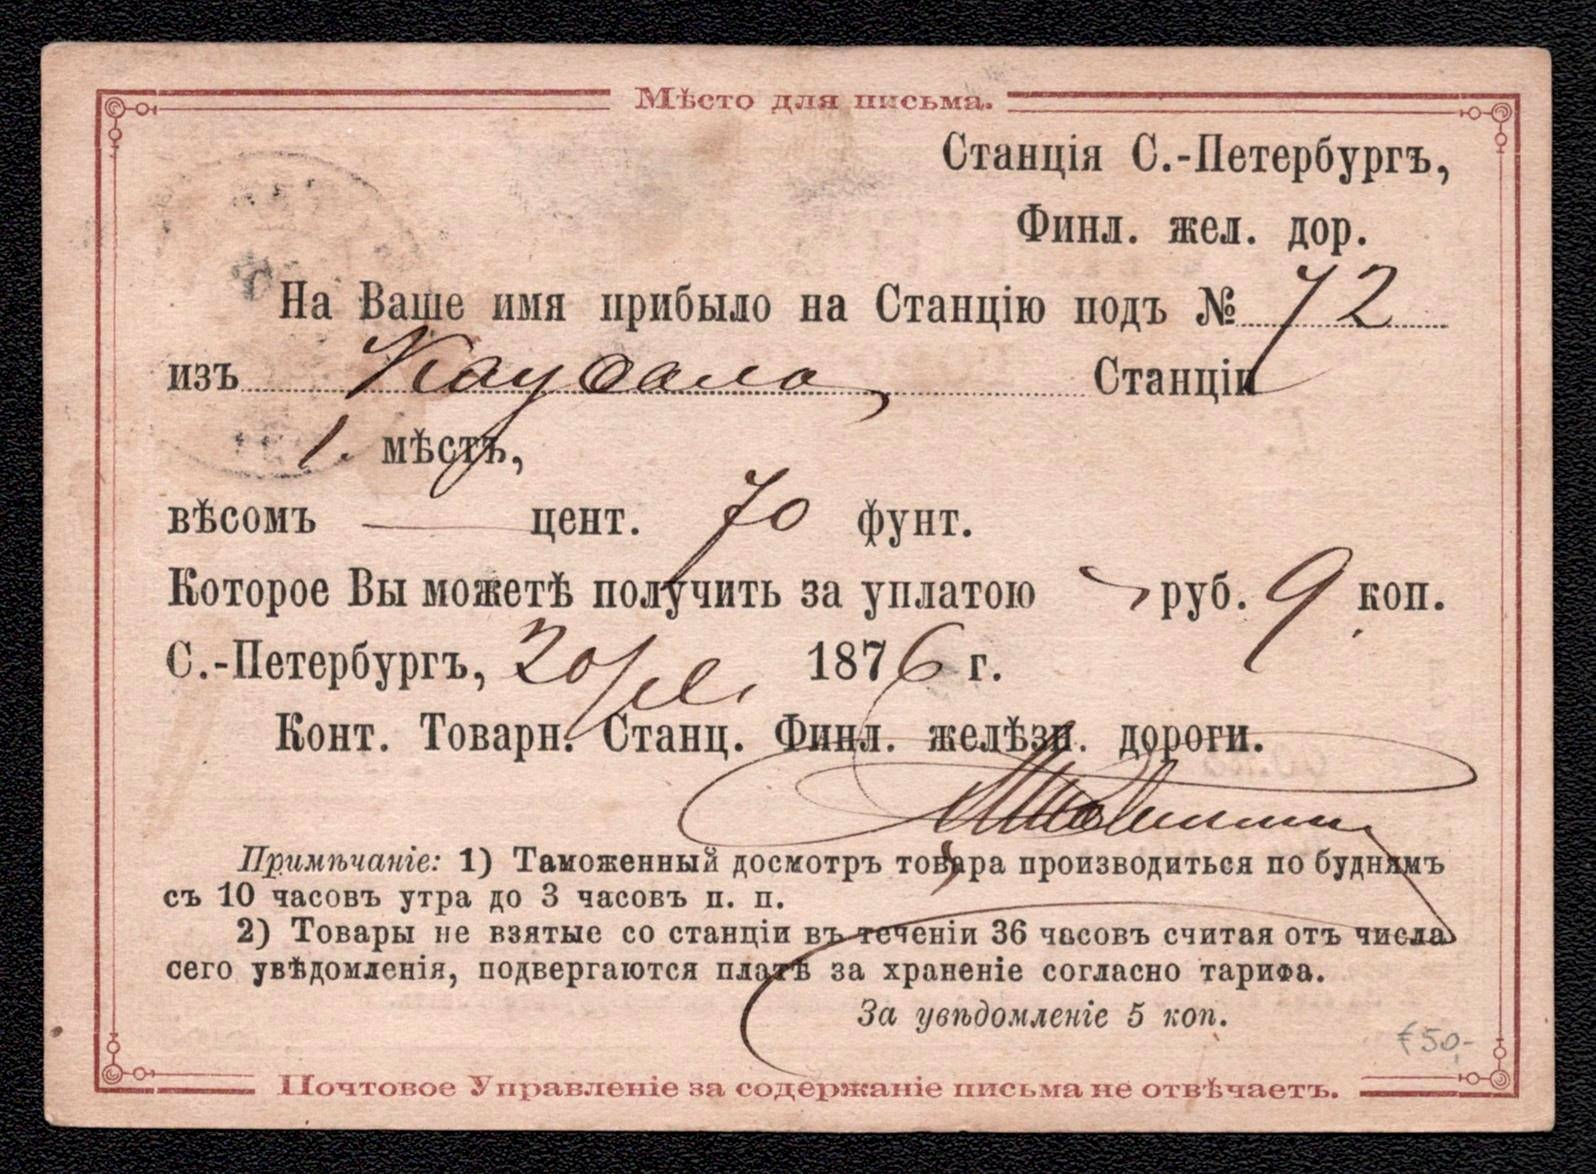 Мѣсто для письма.
Станція С.-Петербургъ,
Финл. жел. дор.
На Ваше имя прибыло на Станцію подъ № 72
изъ Станціи
1. мѣстъ,
вѣсомъ — цент. 70 фунт.
Которое Вы можетѣ получить за уплатою руб. 9 коп.
С.-Петербургъ, 20 1876 г.
Конт. Товарн. Станц. Финл. желѣзн. дороги.
Примѣчаніе: 1) Таможенный досмотръ товара производиться по буднямъ
съ 10 часовъ утра до 3 часовъ п. п.
2) Товары не взятые со станціи въ теченіи 36 часовъ считая отъ числа
сего увѣдомленія, подвергаются платѣ за храненіе согласно тарифа.
За увѣдомленіе 5 коп.
€50,-
Почтовое Управленіе за содержаніе письма не отвѣчаетъ.